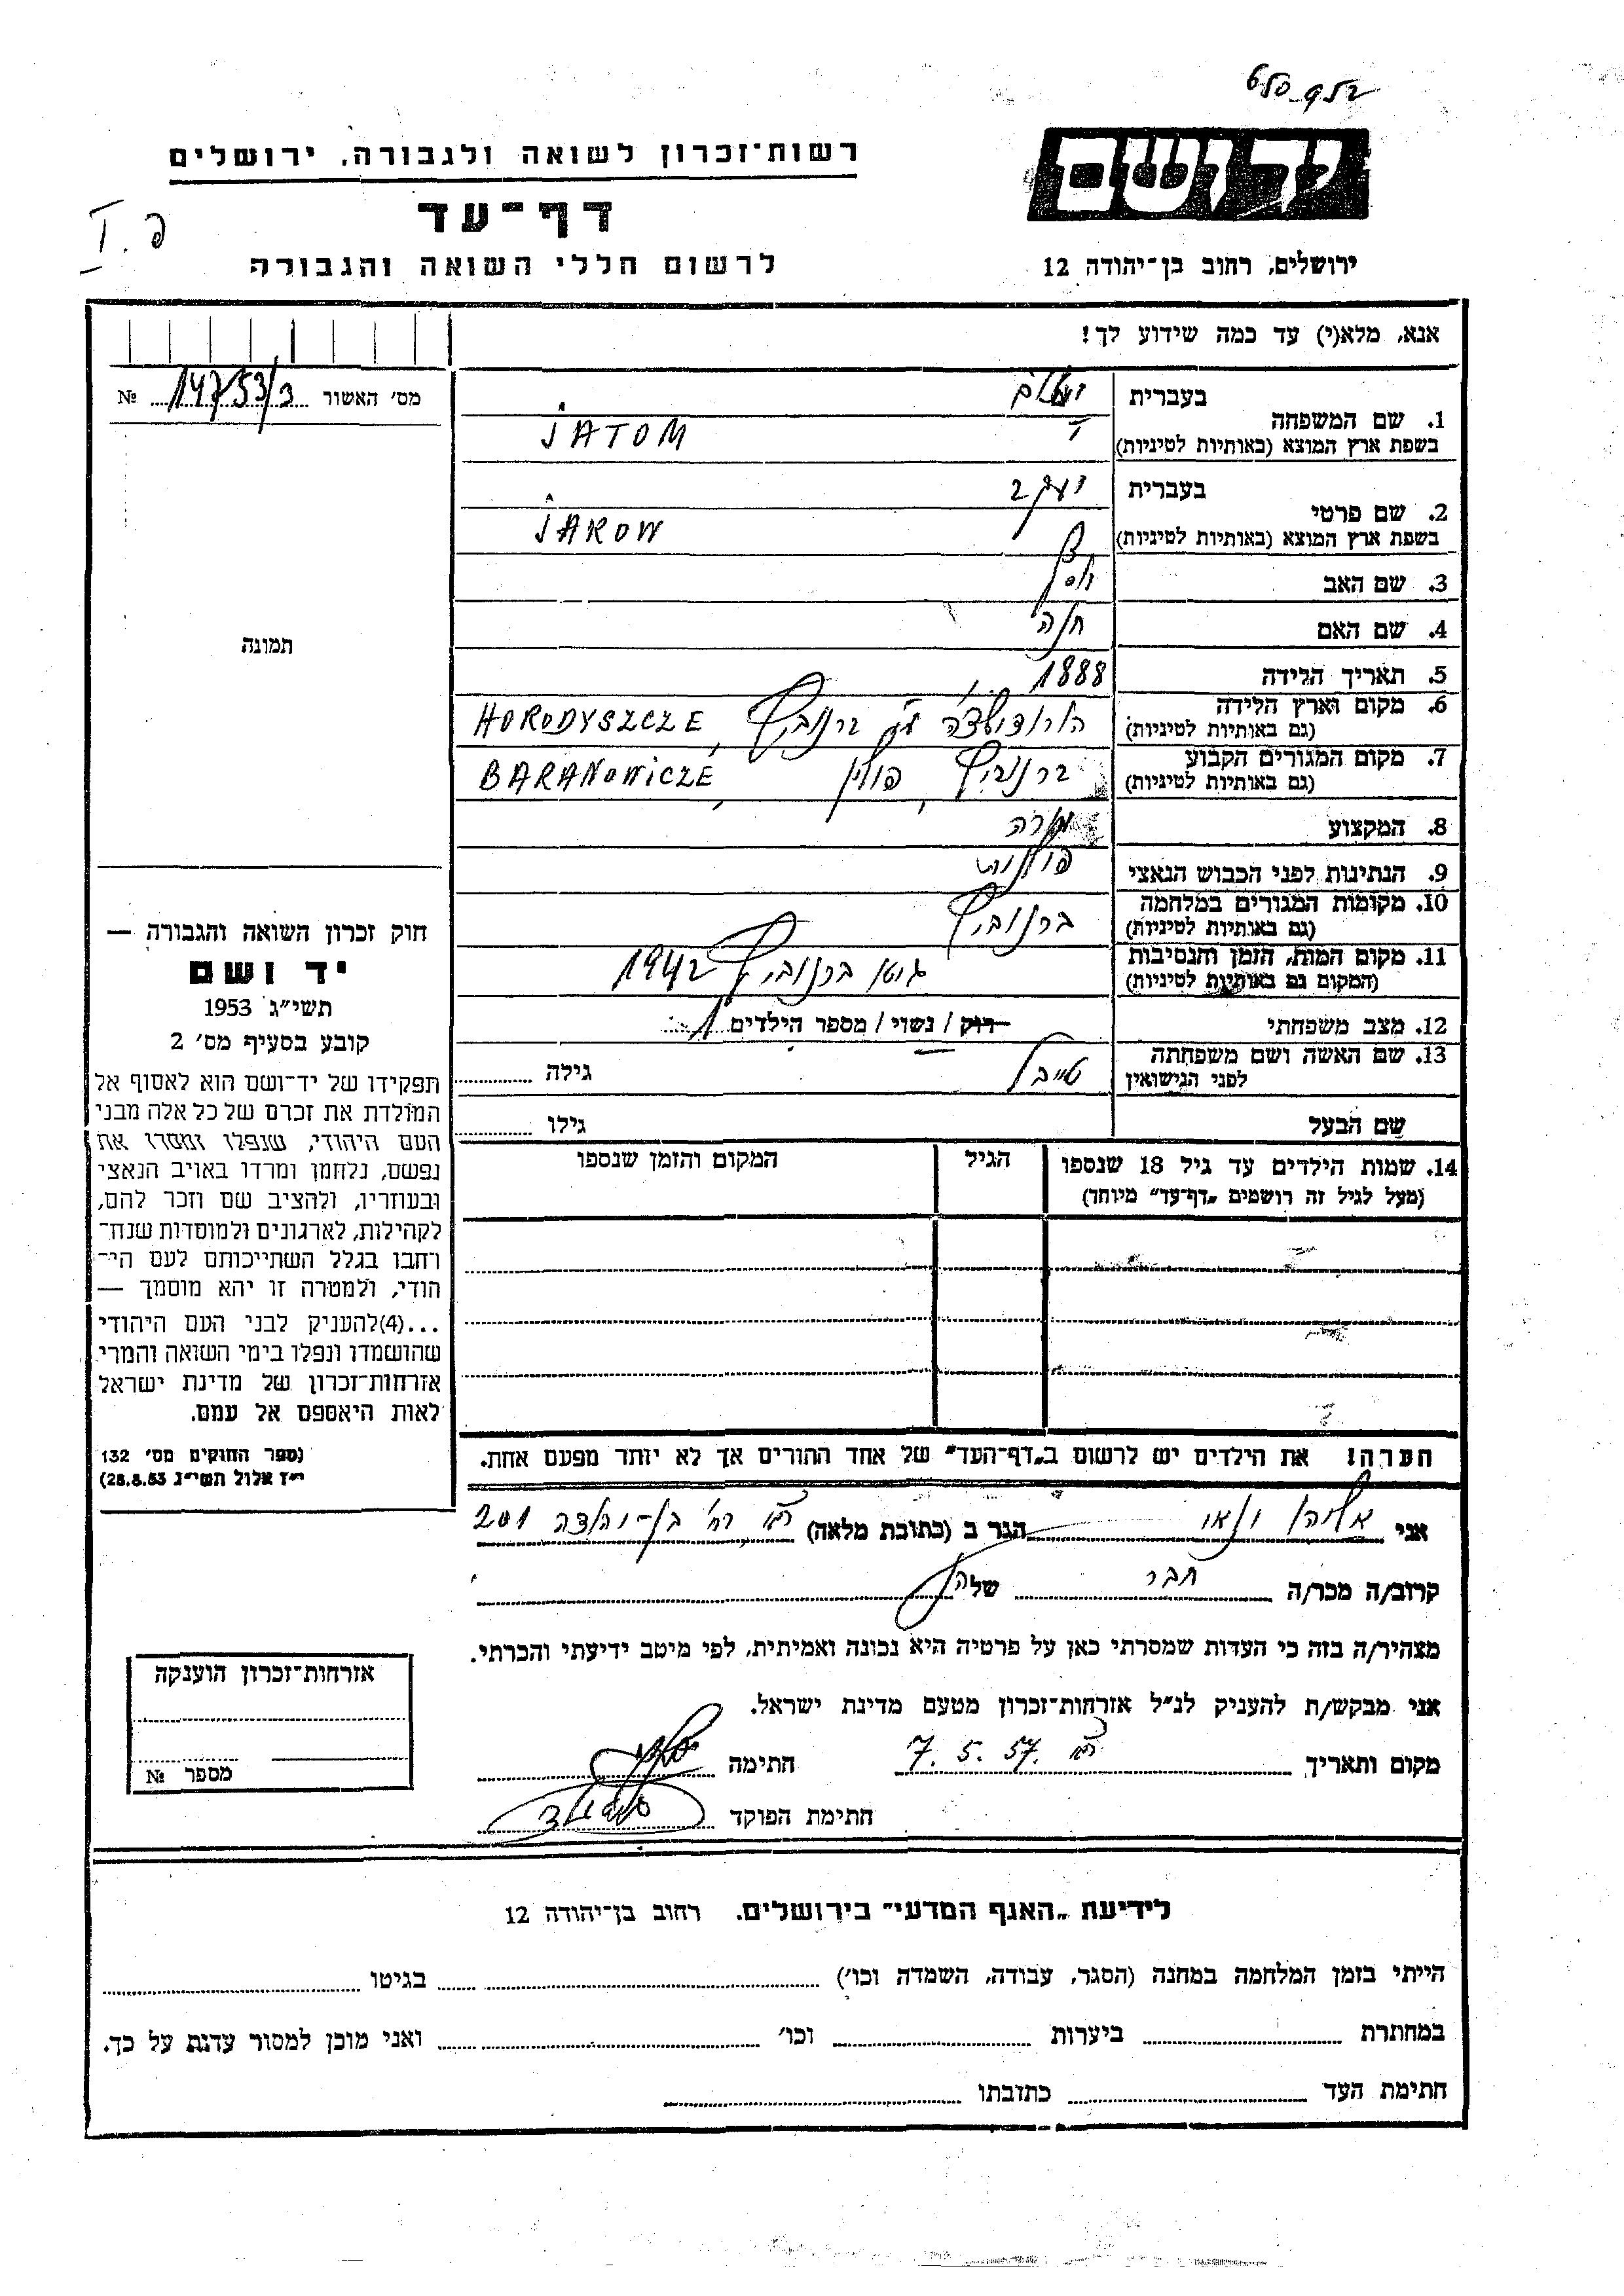 יד ושם
רשות־זכרון לשואה ולגבורה, ירושלים
דף־עד
לרשום חללי השואה והגבורה
ירושלים, רחוב בן־יהודה 12
אנא, מלא(י) עד כמה שידוע לך!
מס׳ האשור 14753/3 №
1. שם המשפחה
בעברית
בשפת ארץ המוצא (באותיות לטיניות) JATOM
2. שם פרטי
בעברית יעקב
בשפת ארץ המוצא (באותיות לטיניות) JAKOW
3. שם האב
4. שם האם חיה
5. תאריך הלידה 1888
6. מקום וארץ הלידה
(גם באותיות לטיניות) ברנוביץ, HORODYSZCZE
7. מקום המגורים הקבוע
(גם באותיות לטיניות) ברנוביץ, פולין, BARANOWICZE
8. המקצוע מורה
9. הנתינות לפני הכבוש הנאצי פולנית
10. מקומות המגורים במלחמה
(גם באותיות לטיניות) ברנוביץ
11. מקום המות, הזמן והנסיבות
(המקום גם באותיות לטיניות) גיטו ברנוביץ 1942
12. מצב משפחתי רוק / נשוי / מספר הילדים 1
13. שם האשה ושם משפחתה
לפני הנישואין טייבל גילה
שם הבעל גילו
14. שמות הילדים עד גיל 18 שנספו
(מעל לגיל זה רושמים „דף־עד” מיוחד)
הגיל
המקום והזמן שנספו
תמונה
חוק זכרון השואה והגבורה —
יד ושם
תשי״ג 1953
קובע בסעיף מס׳ 2
תפקידו של יד־ושם הוא לאסוף אל
המולדת את זכרם של כל אלה מבני
העם היהודי, שנפלו ומסרו את
נפשם, נלחמו ומרדו באויב הנאצי
ובעוזריו, ולהציב שם וזכר להם,
לקהילות, לארגונים ולמוסדות שנח־
רבו בגלל השתייכותם לעם הי־
הודי, ולמטרה זו יהא מוסמך —
...(4)להעניק לבני העם היהודי
שהושמדו ונפלו בימי השואה והמרי
אזרחות־זכרון של מדינת ישראל
לאות היאספם אל עמם.
(ספר החוקים מס׳ 132
י״ז אלול תשי״ג 28.8.53)
הערה! את הילדים יש לרשום ב„דף־העד” של אחד ההורים אך לא יותר מפעם אחת.
אני הגר ב (כתובת מלאה) ת״א רח׳ בן־יהודה 201
קרוב/ה מכר/ה חבר של
מצהיר/ה בזה כי העדות שמסרתי כאן על פרטיה היא נכונה ואמיתית, לפי מיטב ידיעתי והכרתי.
אני מבקש/ת להעניק לנ״ל אזרחות־זכרון מטעם מדינת ישראל.
מקום ותאריך ת״א 7.5.57 חתימה
חתימת הפוקד
אזרחות־זכרון הוענקה
מספר №
לידיעת „האגף המדעי” בירושלים, רחוב בן־יהודה 12
הייתי בזמן המלחמה במחנה (הסגר, עבודה, השמדה וכו׳) בגיטו
במחתרת ביערות וכו׳ ואני מוכן למסור עדות על כך.
חתימת העד כתובתו